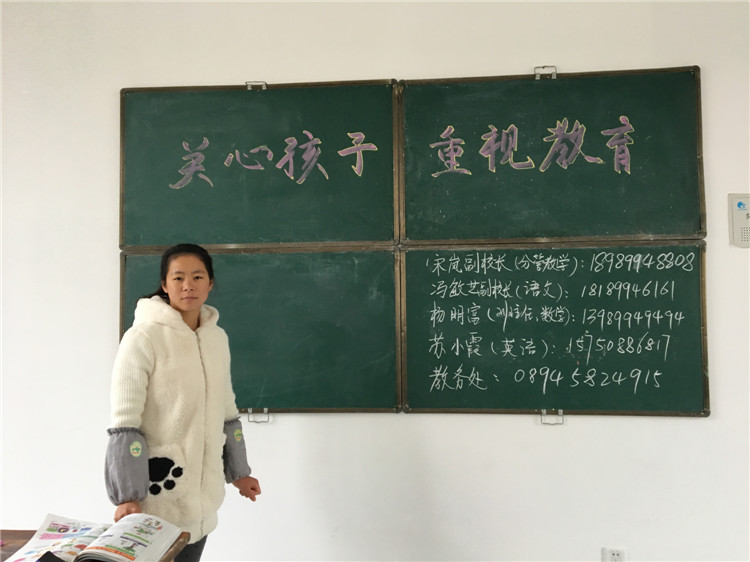 关心孩子 重视教育
宋岚副校长(分管教学):18989948808
冯敏芝副校长(语文):18189946161
杨明富(班主任、数学):13989949494
苏小霞(英语):15750886817
教务处:08945824915